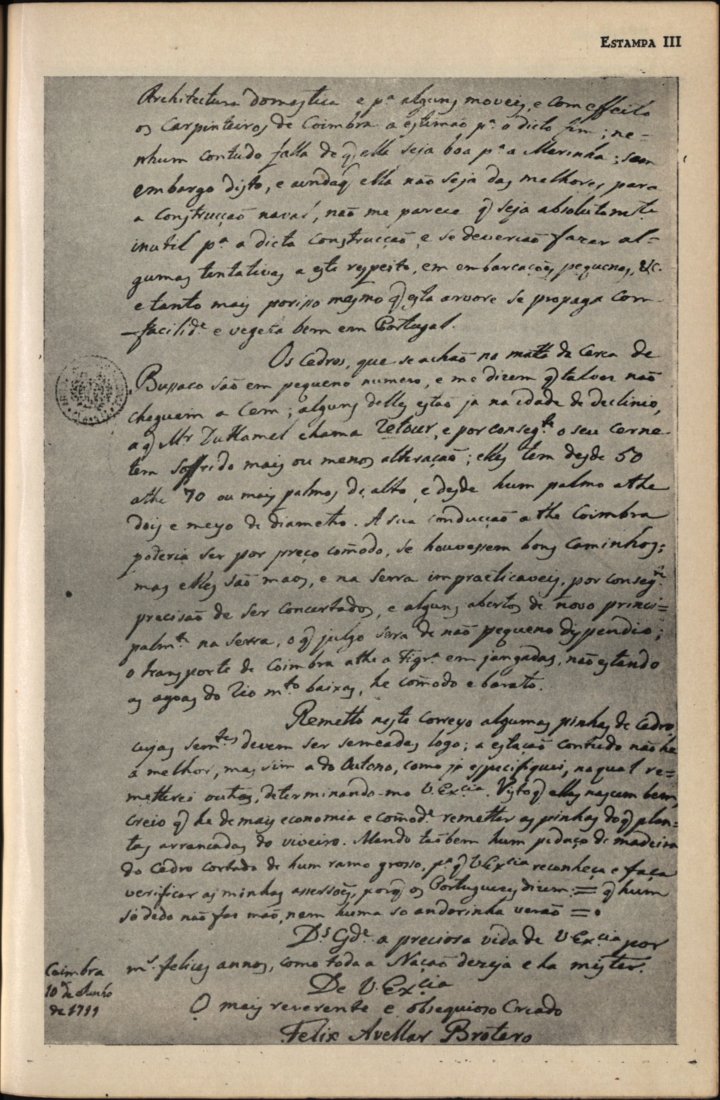 ESTAMPA III
Architectura domestica e pª alguns moveis, e com effeito
os Carpinteiros de Coimbra a estimão pª o dicto fim; ne-
nhum contudo falla de q̃ ella seja boa pª a Marinha; sem
embargo disto, e aindaq̃ ella não seja das melhores para
a construcção naval, não me parece q̃ seja absolutamte
inutil pª a dicta construcção, e se deverião fazer al=
gumas tentativas a este respeito, em embarcações pequenas, &c.
e tanto mais porisso mesmo q̃ esta arvore se propaga com
facilide e vegeta bem em Portugal.
Os Cedros, que se achão na matta da Cerca de
Bussaco são em pequeno numero, e me dizem q̃ talvez não
cheguem a Cem; alguns delles estão ja na idade de declinio,
a q̃ Mr DuHamel chama Retour, e por consegte o seu cerne
tem soffrido mais ou menos alteração; elles tem desde 50
athe 70 ou mais palmos de alto, e desde hum palmo athe
dois e meyo de diametro. A sua conducção athe Coimbra
poderia ser por preço cõmodo, se houvessem bons Caminhos;
mas elles são maos, e na serra impracticaveis, por consegte
precisão de ser concertados, e alguns abertos de novo princi=
palmte na serra, o q̃ julgo sera de não pequeno dispendio;
o transporte de Coimbra athe a Figrª em jangadas, não estando
as agoas do rio mto baixas, he cõmodo e barato.
Remetto neste correyo algumas pinhas de Cedro,
cujas semtes devem ser semeadas logo; a estação contudo não he
a melhor, mas sim a do Outono, como ja especifiquei, na qual re=
metterei outras, determinando-mo V. Excia. Visto q̃ elles nascem bem,
creio q̃ he de mais economia e cõmode remetter as pinhas do q̃ plan=
tas arrancadas do viveiro. Mando taõbem hum pedaço de madeira
do Cedro cortado de hum ramo grosso, pª q̃ V Excia reconheça e faça
verificar as minhas asserções, porq̃ os Portugueses dizem = q̃ hum
só dedo não faz mão, nem huma so andorinha verão =.
Ds Gde a preciosa vida de V Excia por
ms felices annos, como toda a Nação dezeja e ha mister.
De V. Excia
O mais reverente e obsequioso Creado
Felix Avellar Brotero
Coimbra
10 de Junho
de 1799